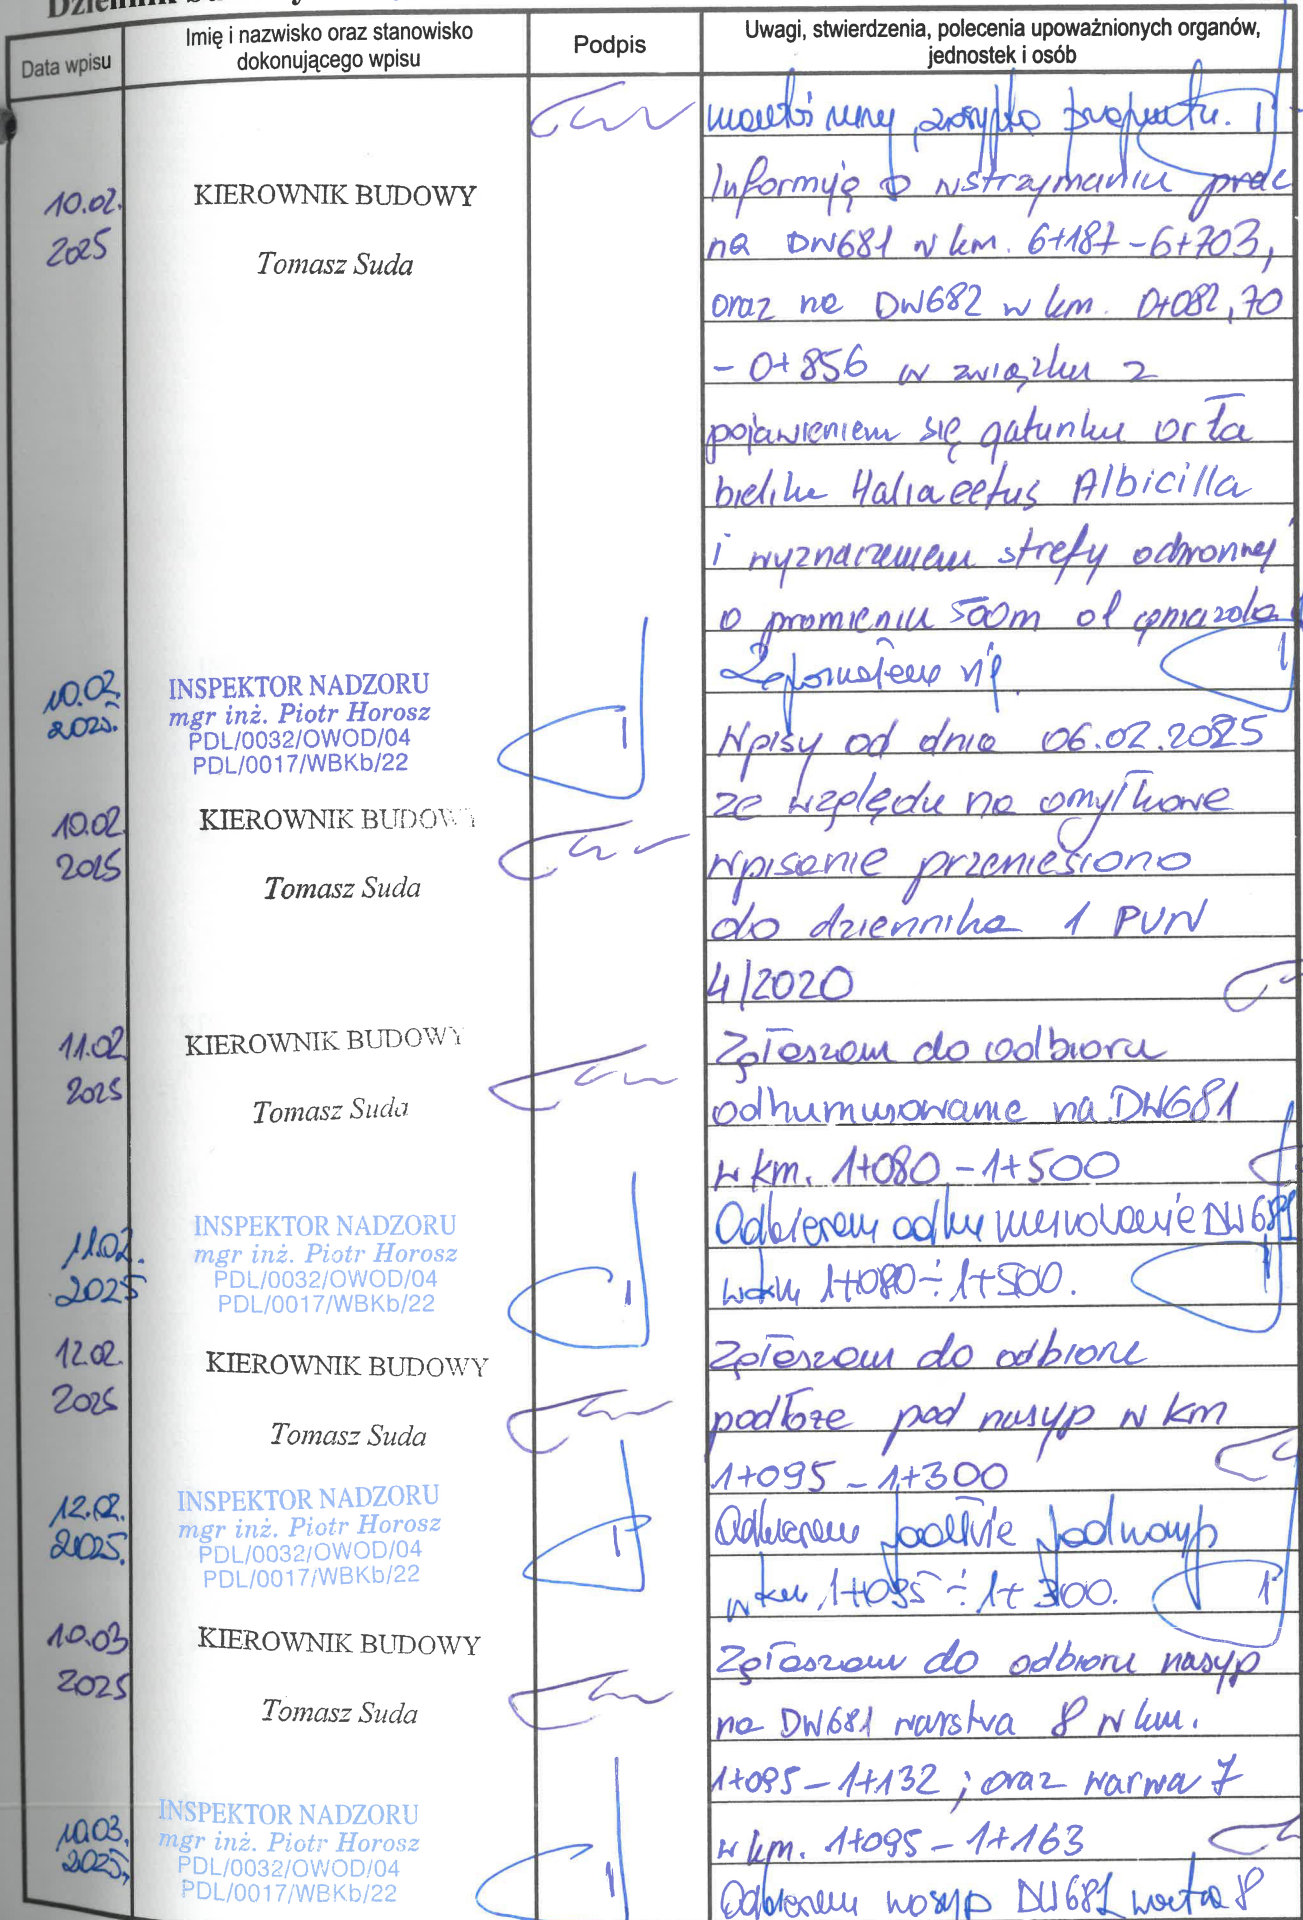 Data wpisu
Imię i nazwisko oraz stanowisko
dokonującego wpisu
Podpis
Uwagi, stwierdzenia, polecenia upoważnionych organów,
jednostek i osób
rury, zasypka
10.02.
2025
KIEROWNIK BUDOWY
Tomasz Suda
Informuję o wstrzymaniu prac
na DW681 w km. 6+187-6+703,
oraz na DW682 w km. 0+082,70
- 0+856 w związku z
pojawieniem się gatunku orła
bielika Haliaeetus Albicilla
i wyznaczeniem strefy ochronnej
o promieniu 500m od gniazda
10.02.
2025.
INSPEKTOR NADZORU
mgr inż. Piotr Horosz
PDL/0032/OWOD/04
PDL/0017/WBKb/22
10.02
2025
KIEROWNIK BUDOWY
Tomasz Suda
Wpisy od dnia 06.02.2025
ze względu na omyłkowe
wpisanie przeniesiono
do dziennika 1 PUW
4/2020
11.02
2025
KIEROWNIK BUDOWY
Tomasz Suda
Zgłaszam do odbioru
odhumusowanie na DW681
w km. 1+080-1+500
11.02.
2025
INSPEKTOR NADZORU
mgr inż. Piotr Horosz
PDL/0032/OWOD/04
PDL/0017/WBKb/22
Odbieram odhumusowanie DW681
w km 1+080÷1+500.
12.02.
2025
KIEROWNIK BUDOWY
Tomasz Suda
Zgłaszam do odbioru
podłoże pod nasyp w km
1+095-1+300
12.02.
2025.
INSPEKTOR NADZORU
mgr inż. Piotr Horosz
PDL/0032/OWOD/04
PDL/0017/WBKb/22
Odbieram podłoże pod nasyp
w km 1+095÷1+300.
10.03
2025
KIEROWNIK BUDOWY
Tomasz Suda
Zgłaszam do odbioru nasyp
na DW681 warstwa 8 w km.
1+095-1+132; oraz warwa 7
w km. 1+095-1+163
10.03.
2025,
INSPEKTOR NADZORU
mgr inż. Piotr Horosz
PDL/0032/OWOD/04
PDL/0017/WBKb/22
Odbieram nasyp DW681 warstwa 8